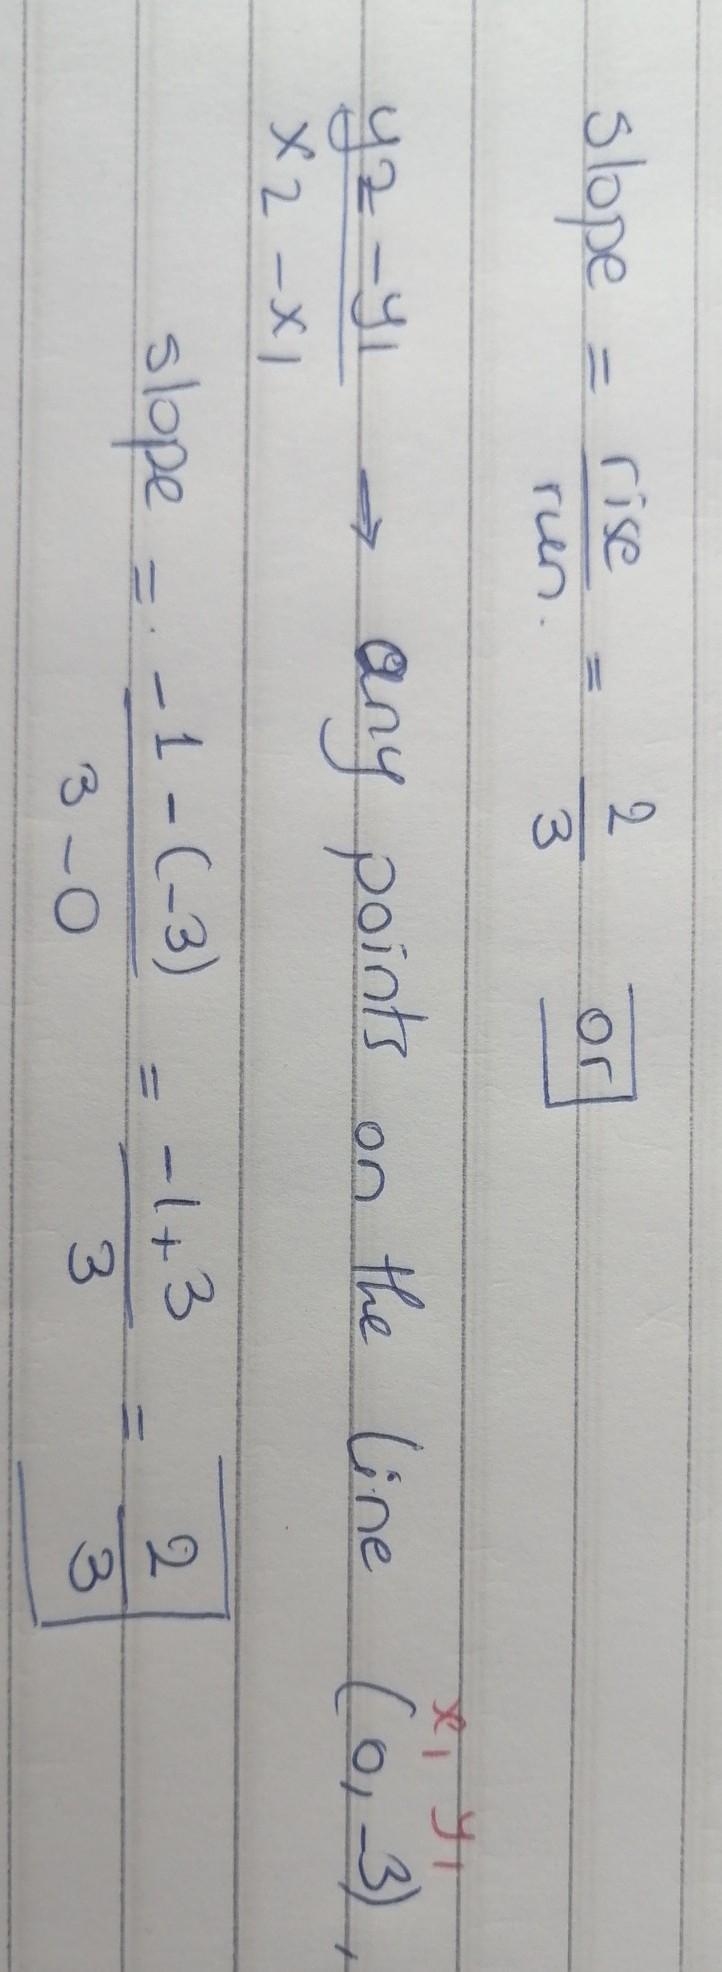 slope = rise/run. = 2/3 or
x1 y1
y2 - y1/x2 - x1 → any points on the line (0, -3),
slope = -1 - (-3)/3 - 0 = -1 + 3/3 = 2/3